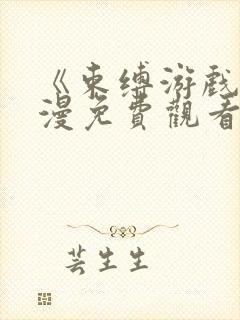 《束缚游戏
漫免費觀看
芸生生